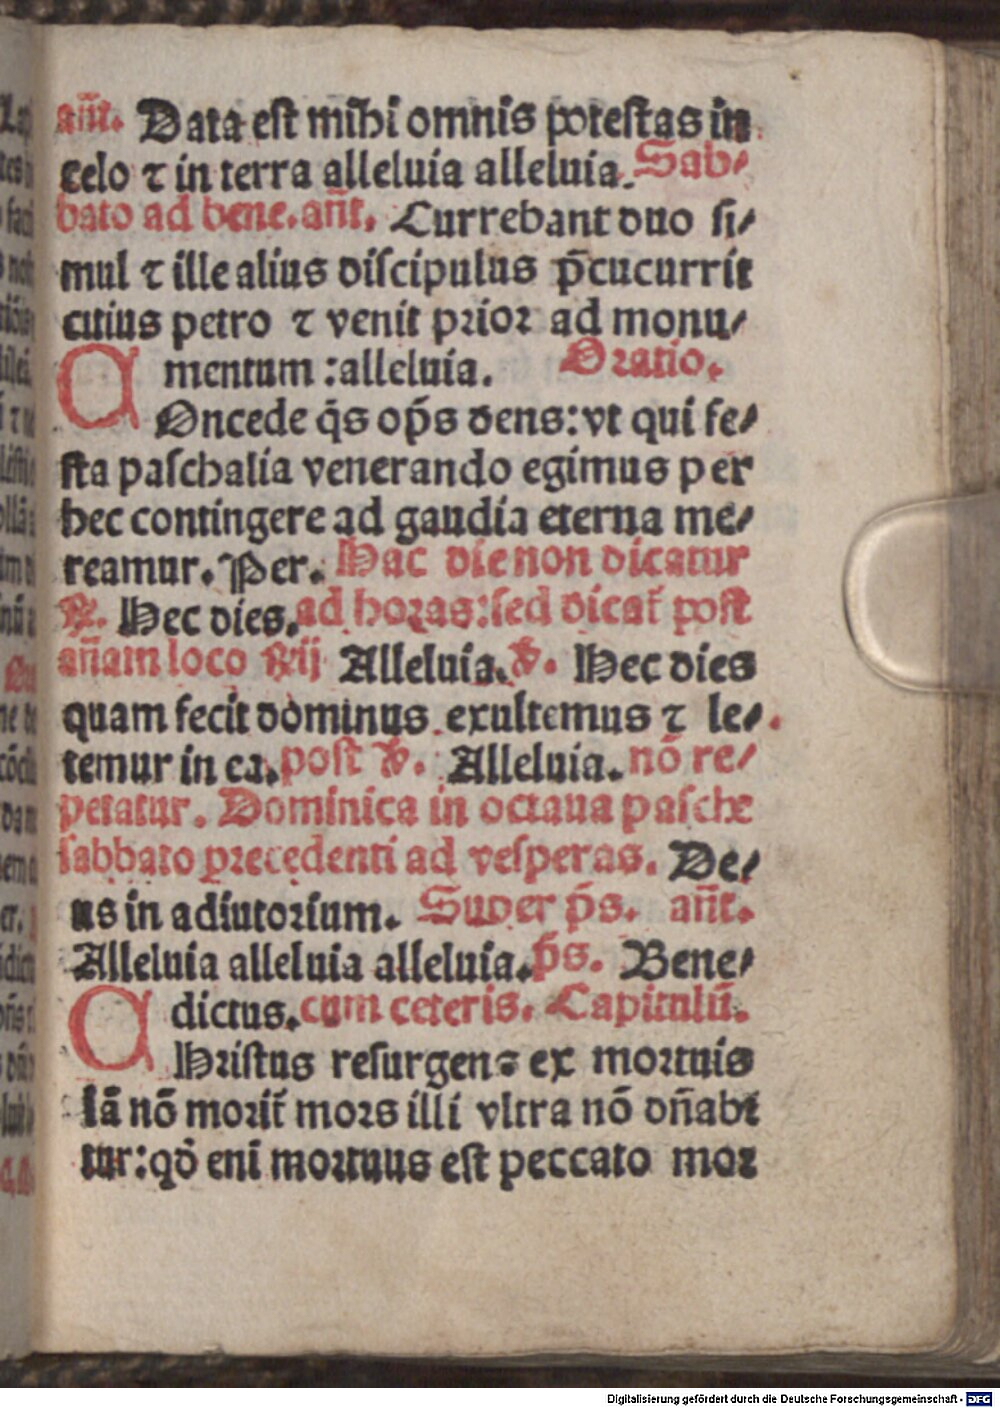 an̄t. Data est mihi omnis potestas in
celo ⁊ in terra alleluia alleluia. Sab⸗
bato ad bene. an̄t. Currebant duo si⸗
mul ⁊ ille alius discipulus p̄cucurrit
citius petro ⁊ venit prior ad monu⸗
mentum : alleluia. Oratio.
COncede q̄s op̄s deus: vt qui fe⸗
sta paschalia venerando egimus per
hec contingere ad gaudia eterna me⸗
reamur. Per. Hac die non dicatur
℟. Hec dies. ad horas: sed dicat̄ post
an̄am loco ℟ij Alleluia. ℣. Hec dies
quam fecit dominus exultemus ⁊ le⸗
temur in ea. post ℣. Alleluia. nō re⸗
petatur. Dominica in octaua pasche
sabbato precedenti ad vesperas. De⸗
us in adiutorium. Super p̄s. an̄t.
Alleluia alleluia alleluia. p̄s. Bene⸗
dictus. cum ceteris. Capitulū.
CHristus resurgens ex mortuis
Iā nō morit̄ mors illi vltra nō dn̄abi
tur: qd̄ eni mortuus est peccato mor
Digitalisierung gefördert durch die Deutsche Forschungsgemeinschaft - DFG